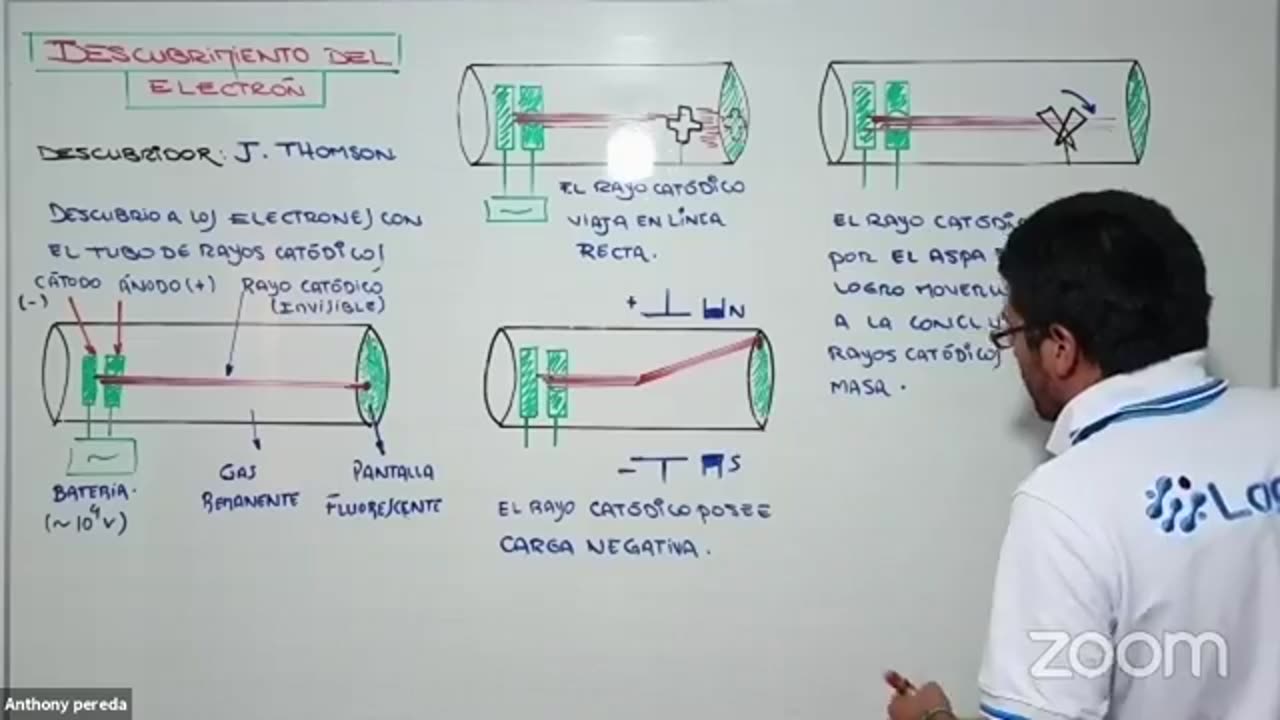 DESCUBRIMIENTO DEL
ELECTRÓN
DESCUBRIDOR: J. THOMSON
DESCUBRIO A LOS ELECTRONES CON
EL TUBO DE RAYOS CATÓDICOS
CÁTODO ÁNODO (+) RAYO CATÓDICO
(-) (INVISIBLE)
BATERIA.
(~10⁴V)
GAS
REMANENTE
PANTALLA
FLUORESCENTE
EL RAYO CATÓDICO
VIAJA EN LÍNEA
RECTA.
+ N
- S
EL RAYO CATÓDICO POSEE
CARGA NEGATIVA.
EL RAYO
POR EL ASPA
LOGRO
A LA
RAYOS CATÓDICOS
MASA.
zoom
Anthony pereda